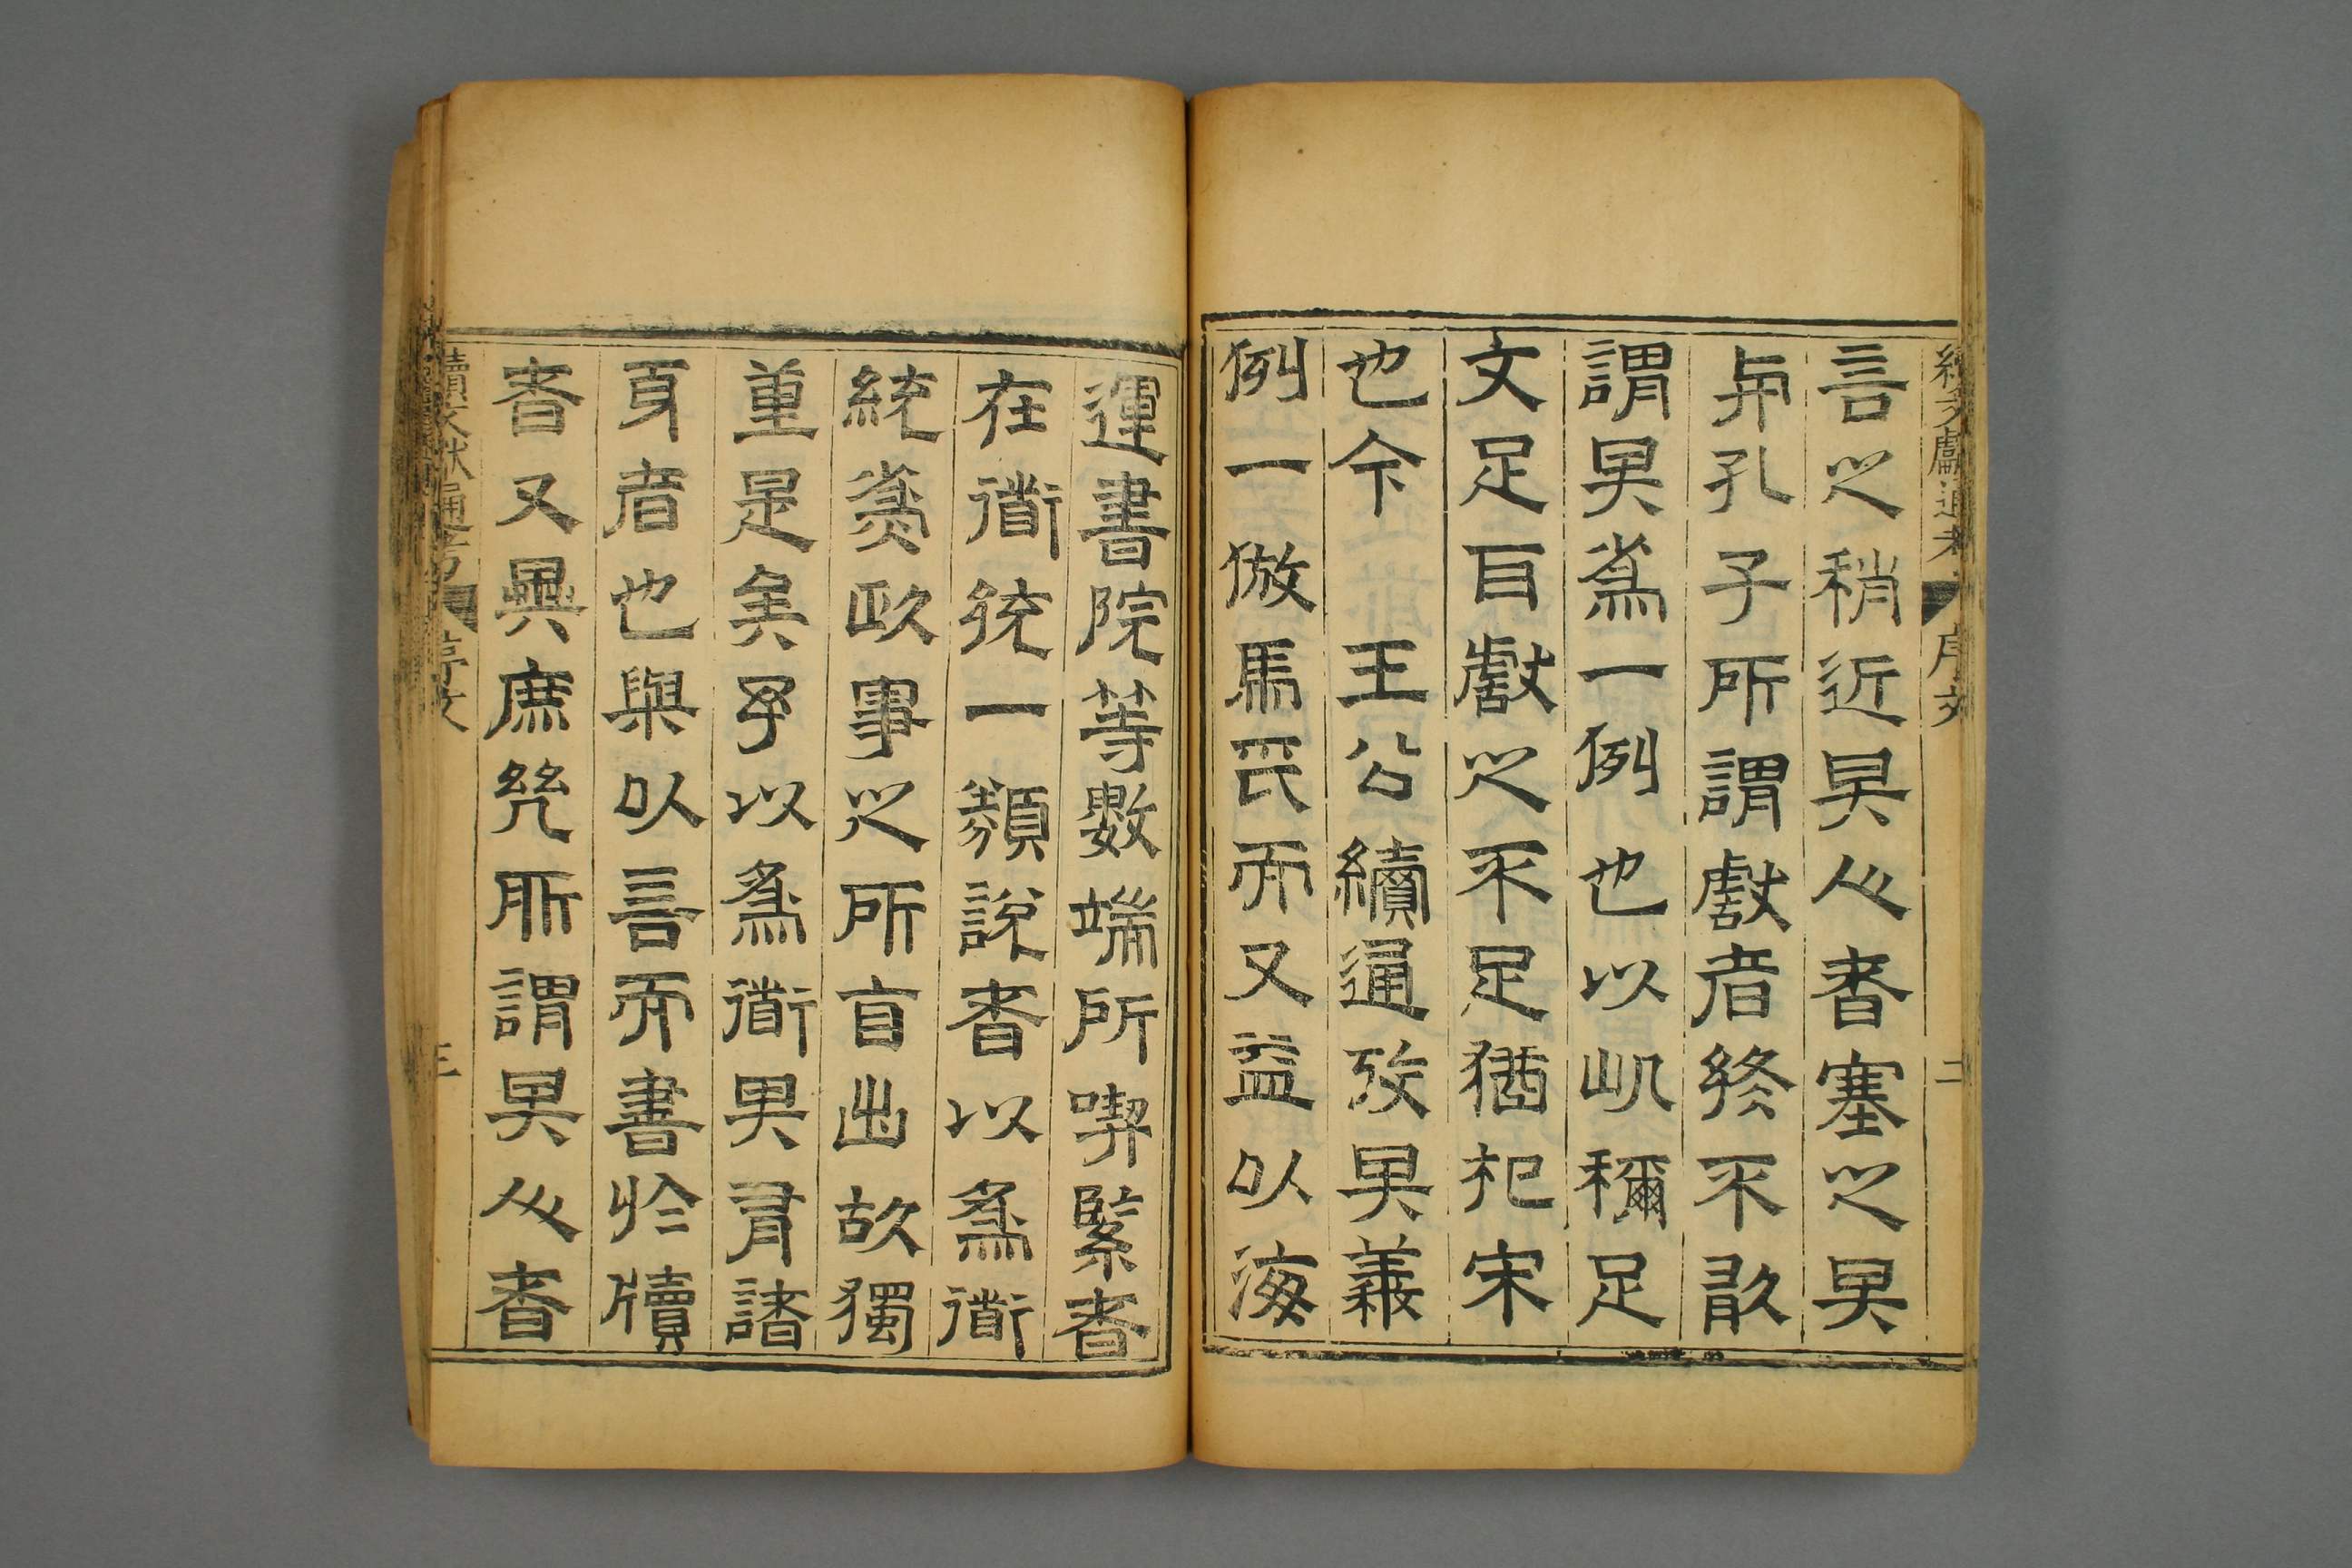 續文獻通考 序文 二
言之稍近其人者塞之其
與孔子所謂獻者終不敢
謂其為一例也以此稱足
文足百獻之不足猶杞宋
也今 王公續通攷其義
例一倣馬氏而又益以海
運書院等數端所喫緊者
在衟統一類說者以為衟
統兼政事之所自出故獨
重是矣予以為衟其有諸
身者也與以言而書於牘
者又與庶幾所謂其人者
續文獻通考 序文 三